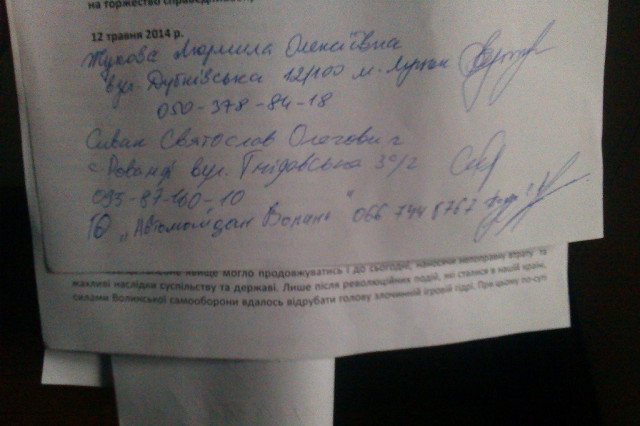 на торжество справедливості,
12 травня 2014 р.
Жукова Людмила Олексіївна
вул. Дубнівська 12/100 м. Луцьк
050-378-84-18
Сиван Святослав Олегович
с Рованці вул. Гнідавська 3
095-87-100-10
ГО „Автомайдан Волинь" 066 744 8767
явище могло продовжуватись і до сьогодні, наносячи непоправну втрату, та
жахливі наслідки суспільству та державі. Лише після революційних подій, які сталися в нашій країні,
силами Волинської самооборони вдалось відрубати голову злочинній ігровій гідрі. При цьому по-суті